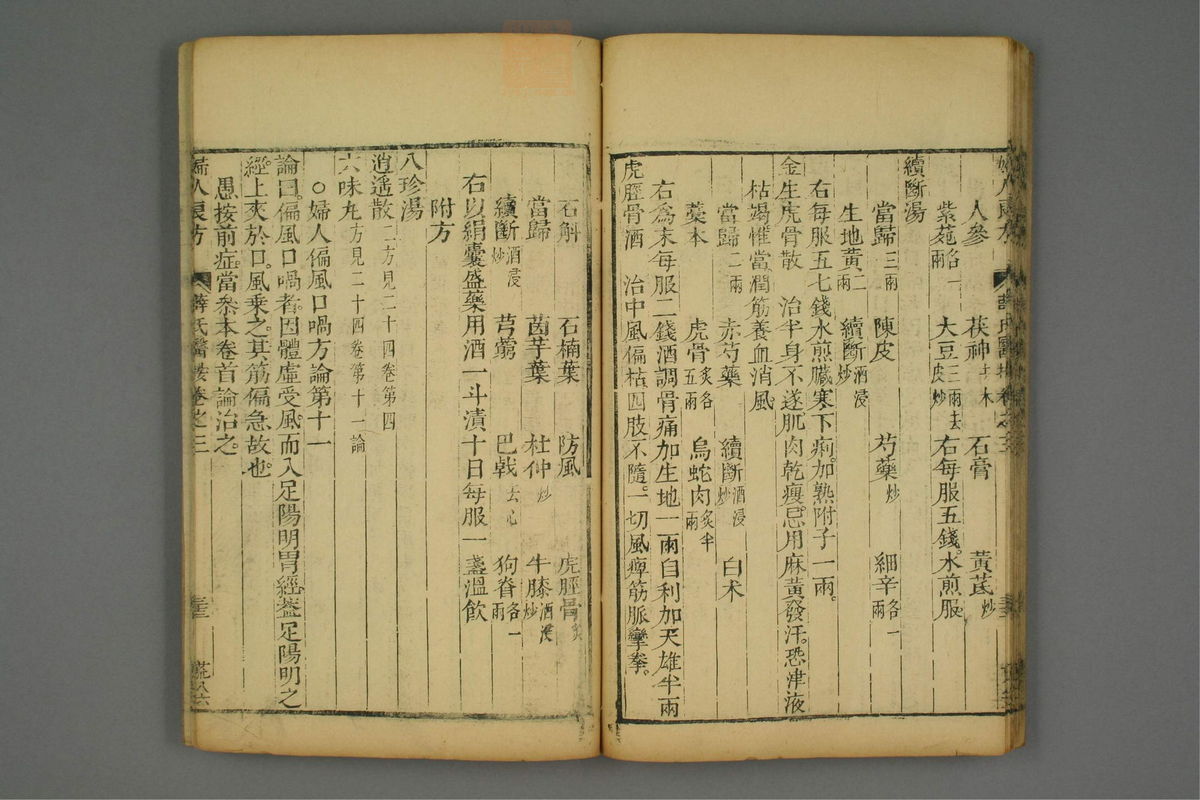 人參 茯神去木 石膏 黃芪炒
紫菀各一兩 大豆二兩去皮炒 右每服五錢。水煎服。
續斷湯
當歸三兩 陳皮 芍藥炒 細辛各一兩
生地黃二兩 續斷酒浸炒
右每服五七錢水煎臟寒下痢。加熟附子一兩。
金生虎骨散 治半身不遂肌肉乾瘦。忌用麻黃發汗。恐津液
枯竭惟當潤筋養血消風。
當歸二兩 赤芍藥 續斷酒浸炒 白朮
藁本 虎骨炙各五兩 烏蛇肉炙半兩
右為末每服二錢酒調骨痛加生地一兩自利加天雄半兩
虎脛骨酒 治中風偏枯四肢不隨。一切風痺筋脈攣拳。
石斛 石楠葉 防風 虎脛骨炙
當歸 茵芋葉 杜仲炒 牛膝酒浸炒
續斷酒浸炒 芎藭 巴戟去心 狗脊各一兩
右以絹囊盛藥用酒一斗漬十日每服一盞溫飲
附方
八珍湯
逍遙散二方見二十四卷第四
六味丸方見二十四卷第十一論
○婦人偏風口喎方論第十一
論曰。偏風口喎者。因體虛受風。而入足陽明胃經。蓋足陽明之
經。上夾於口。風乘之。其筋偏急故也。
愚按前症。當叅本卷首論治之。
婦人良方 薛氏醫按卷之三